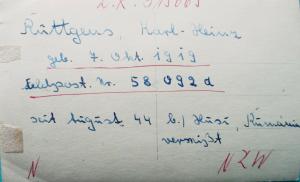 Z.K. 013003
Rüttgens, Karl-Heinz
geb. 7. Okt. 1919
Feldpost. Nr. 58 092 d
seit August 44 b./ Husi, Rumänien
vermißt
N
NZW